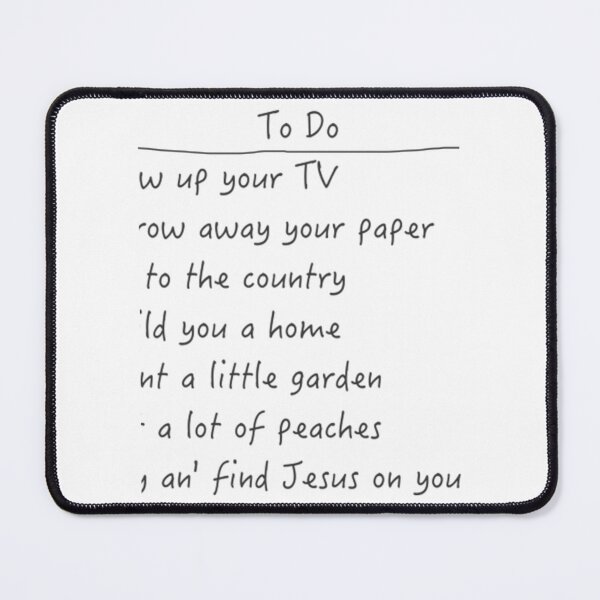 To Do
w up your TV
row away your paper
to the country
ld you a home
nt a little garden
a lot of peaches
, an' find Jesus on you